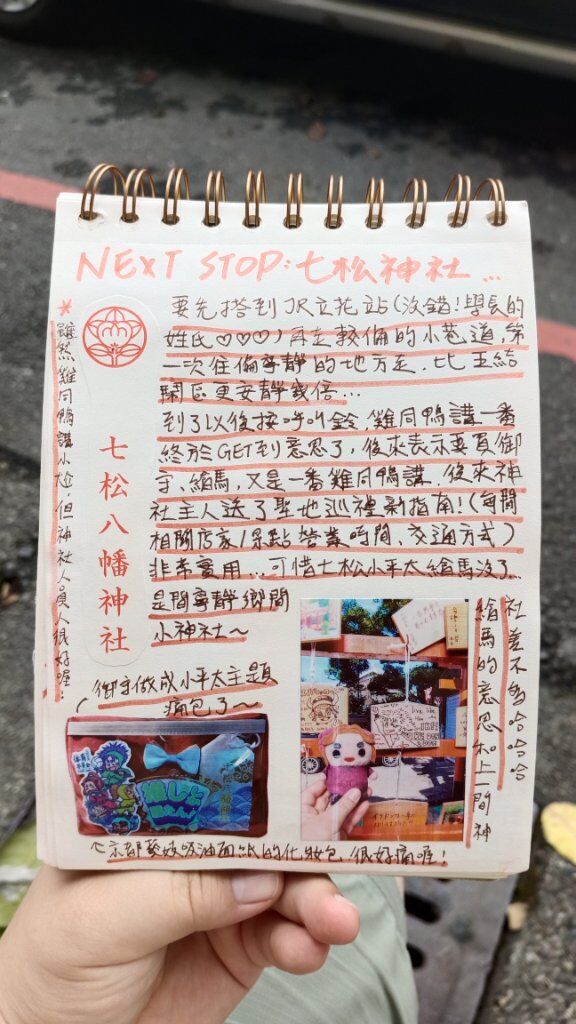 NEXT STOP: 七松神社...
要先搭到JR立花站(沒錯!學長的
姓氏♡♡♡)再走較偏的小巷道,第
一次往偏寧靜的地方走,比王結
鬧區更安靜幾倍...
到了以後按呼叫鈴,雞同鴨講一番
終於GET到意思了,後來表示要買御
守、繪馬,又是一番雞同鴨講,後來神
社主人送了聖地巡禮新指南!(每間
相關店家/景點營業時間、交通方式)
非常實用...可惜七松小平太繪馬沒了...
是間寧靜鄉間
小神社~
*雖然雞同鴨講小尬,但神社人員人很好喔!
七松八幡神社
御守做成小平太主題
痛包了~
繪馬的意思和上一間神
社差不多哈哈哈
京都藝妓吸油面紙的化妝包 很好痛喔!